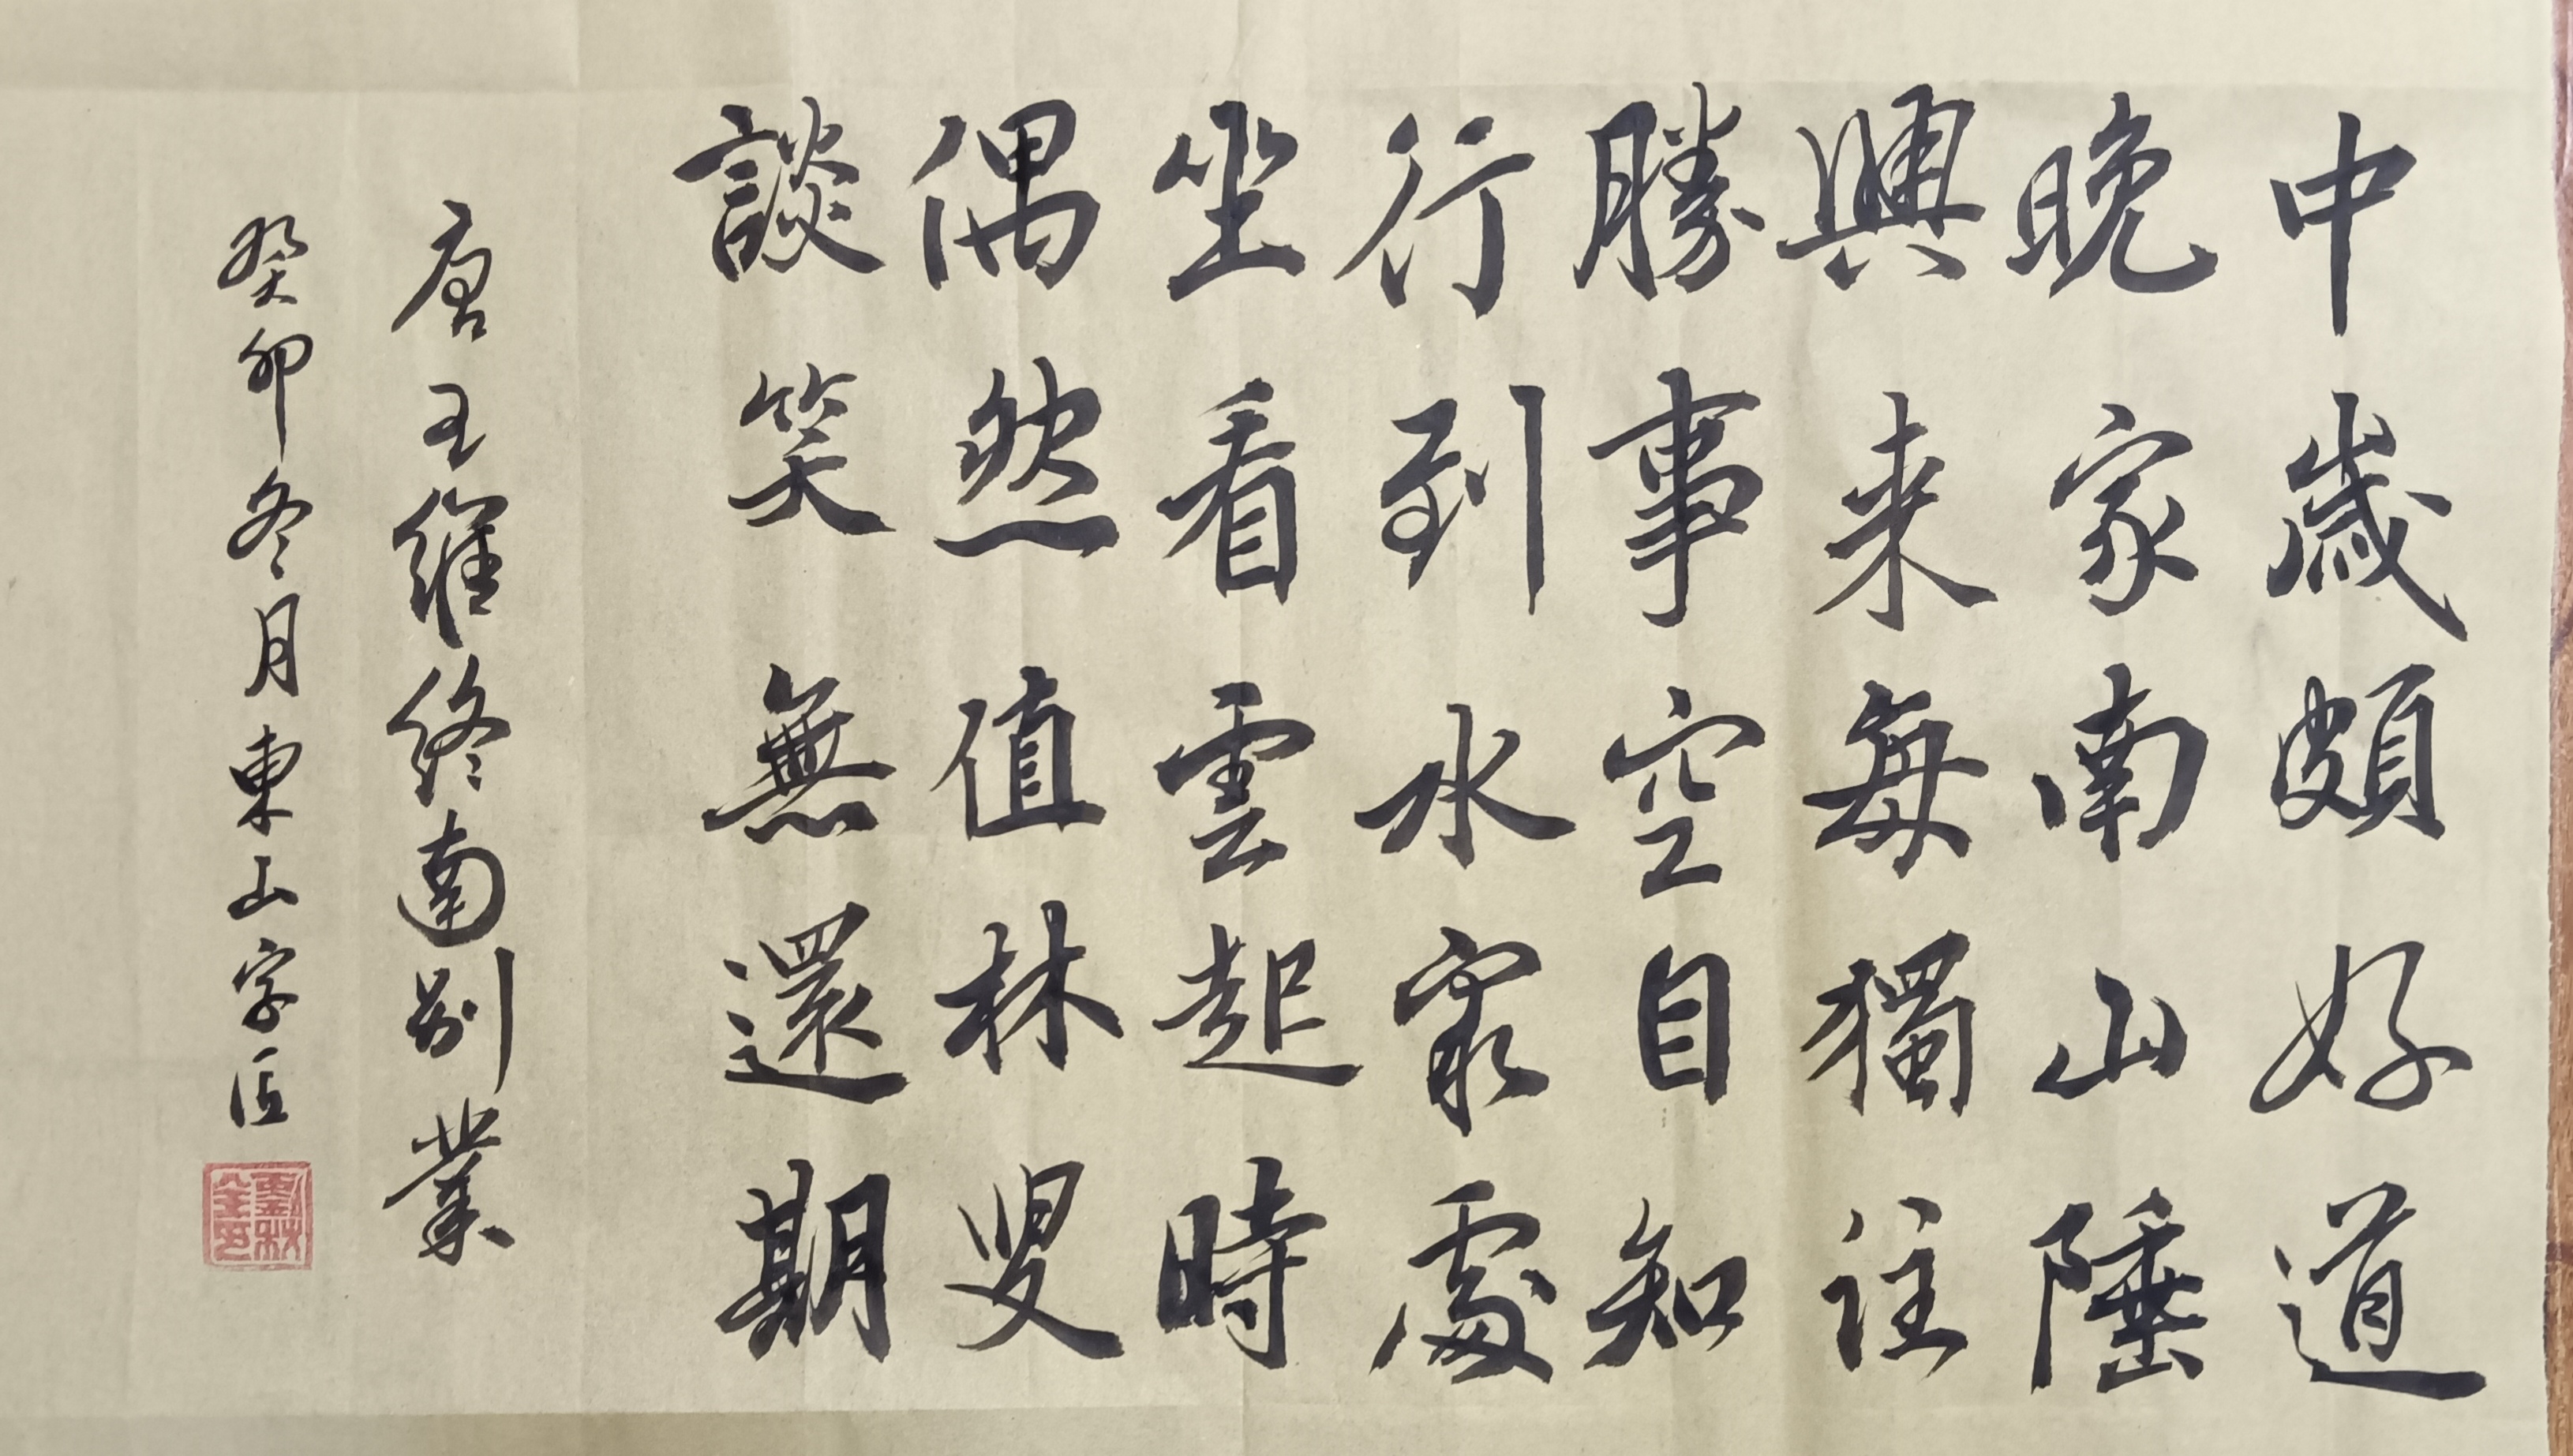 中歲頗好道
晚家南山陲
興来每獨往
勝事空自知
行到水窮處
坐看雲起時
偶然值林叟
談笑無還期
唐王維終南別業
癸卯冬月東山字匠